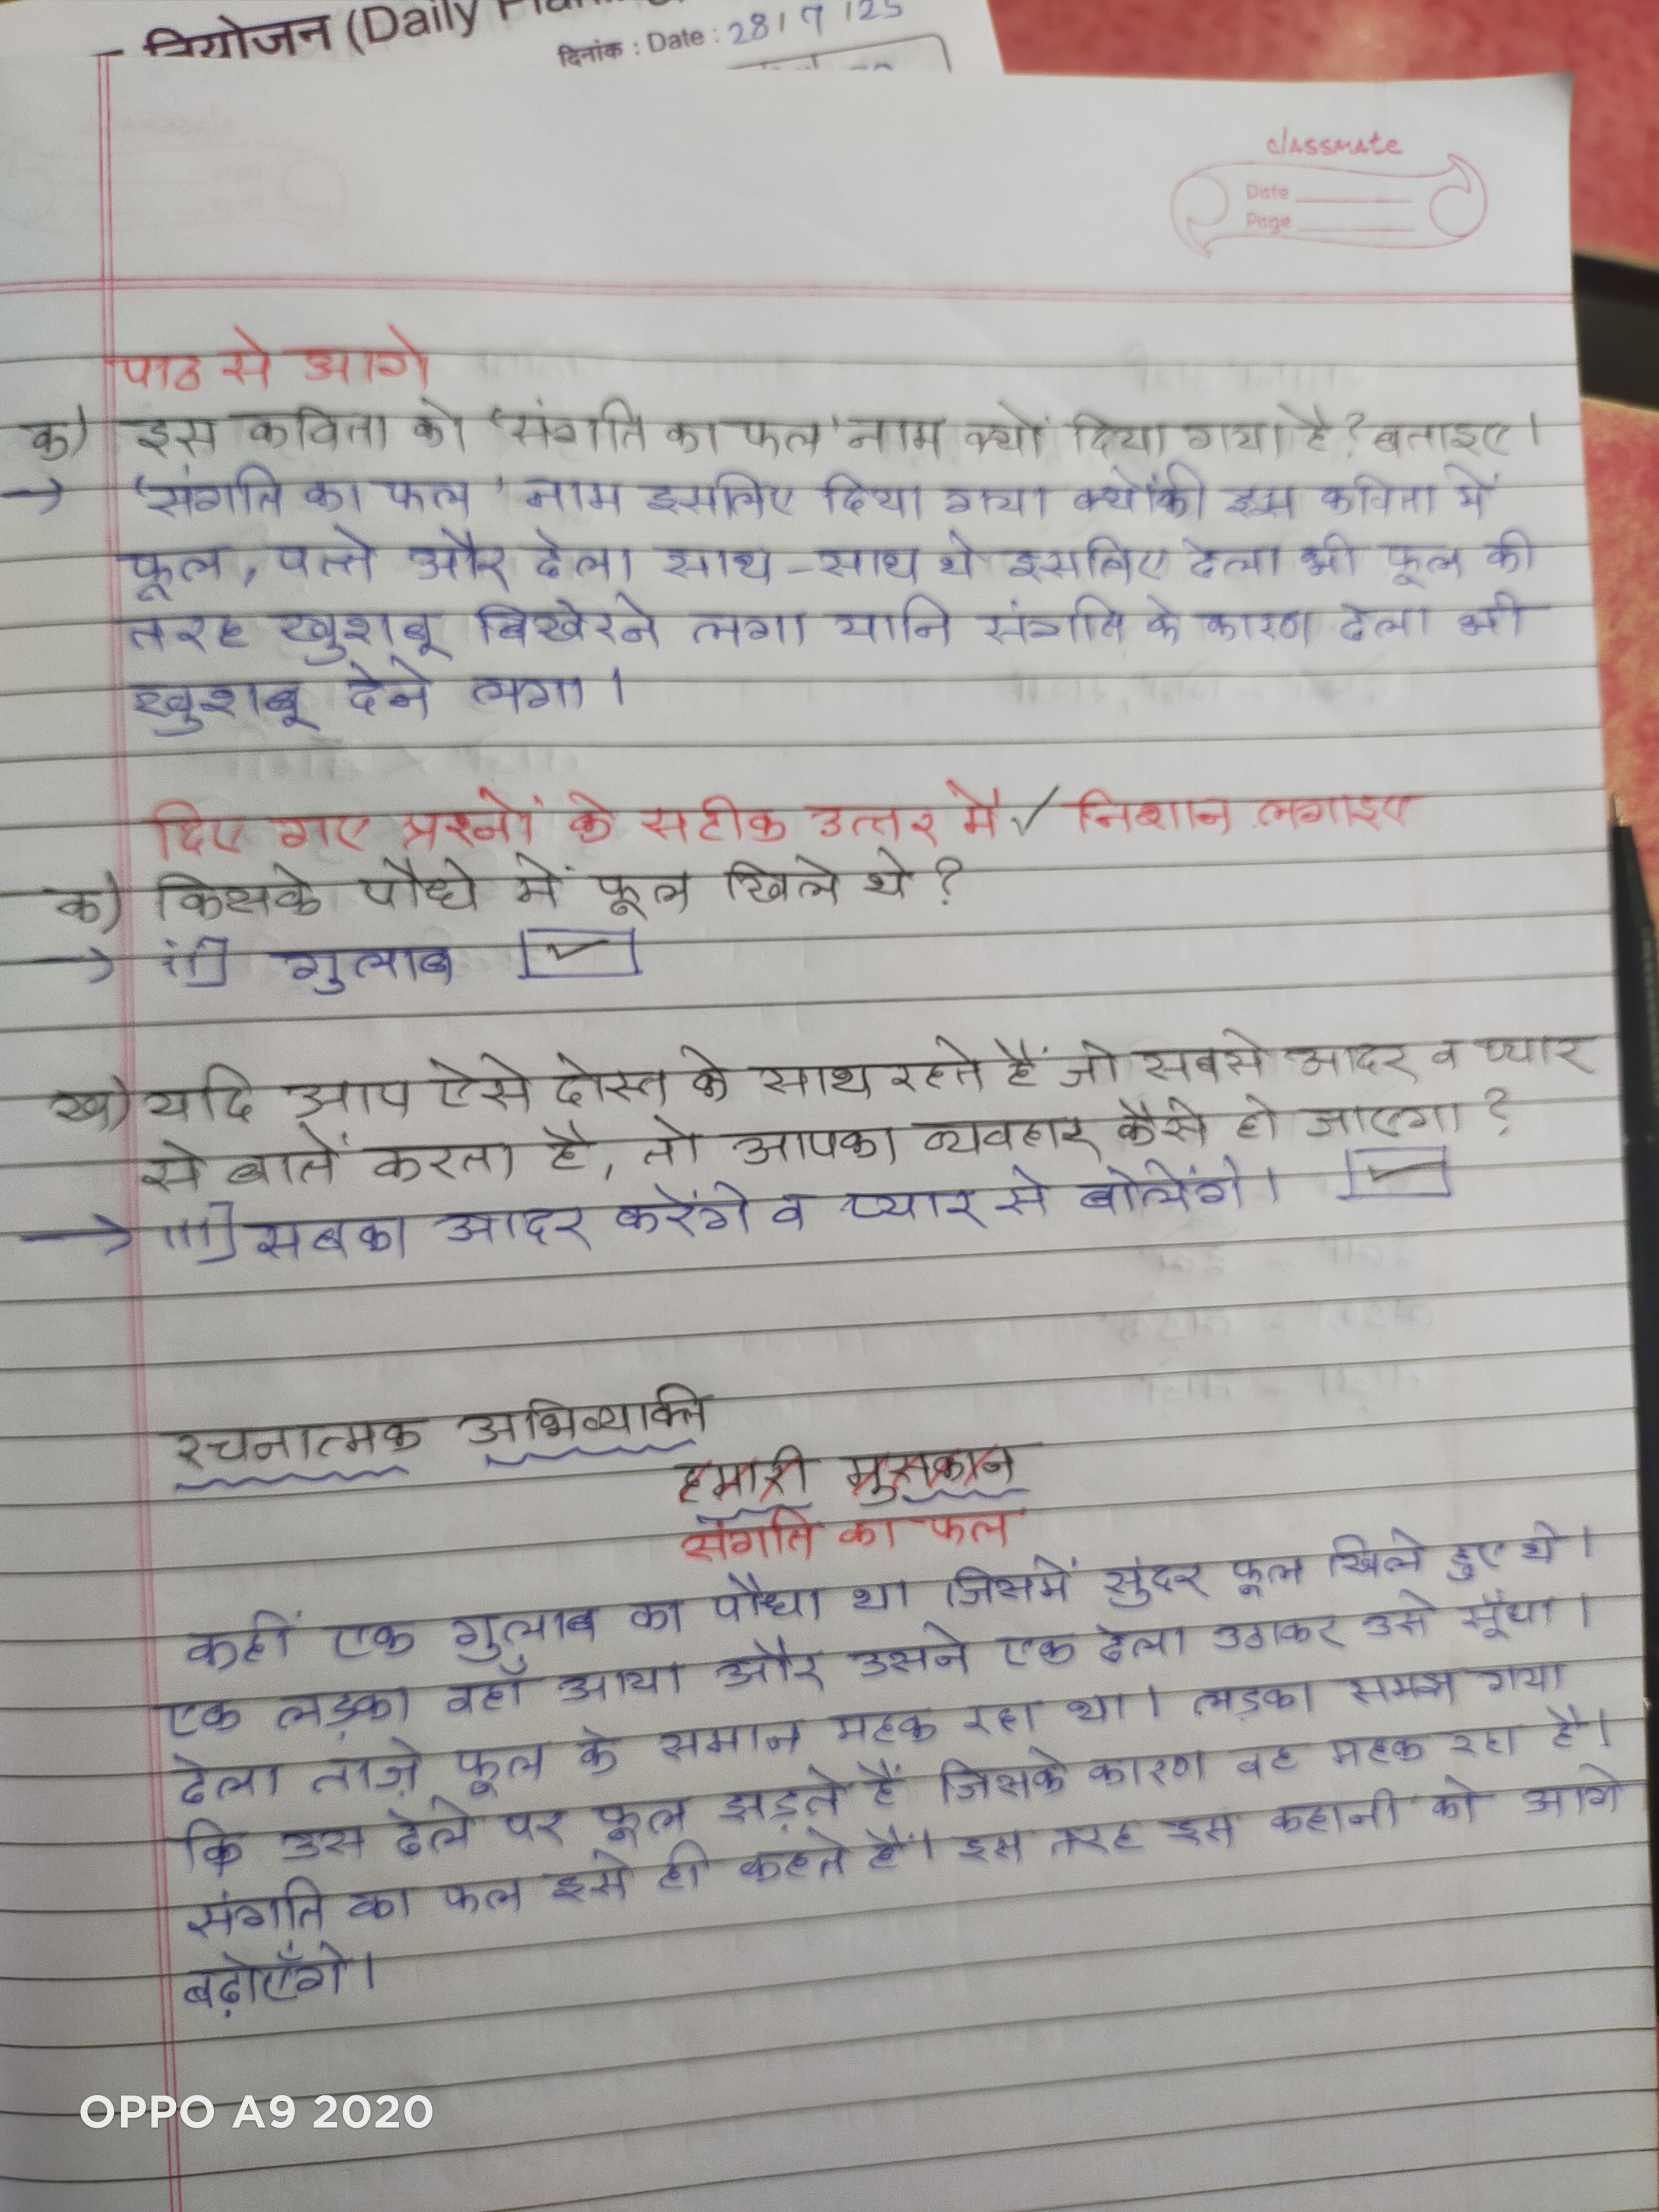 नियोजन (Daily
दिनांक : Date : 28/7/25
classmate
Date
Page
पाठ से आगे
क) इस कविता को 'संगति का फल' नाम क्यों दिया गया है? बताइए।
→ 'संगति का फल' नाम इसलिए दिया गया क्योंकी इस कविता में
फूल, पत्ते और ढेला साथ-साथ थे इसलिए ढेला भी फूल की
तरह खुशबू बिखेरने लगा यानि संगति के कारण ढेला भी
खुशबू देने लगा।
दिए गए प्रश्नों के सटीक उत्तर में ✓ निशान लगाइए
क) किसके पौधे में फूल खिले थे?
→ ii] गुलाब ✓
ख) यदि आप ऐसे दोस्त के साथ रहते हैं जो सबसे आदर व प्यार
से बातें करता है, तो आपका व्यवहार कैसे हो जाएगा?
→ iii] सबका आदर करेंगे व प्यार से बोलेंगे। ✓
रचनात्मक अभिव्यक्ति
हमारी मुसकान
संगति का फल
कहीं एक गुलाब का पौधा था जिसमें सुंदर फूल खिले हुए थे।
एक लड़का वहाँ आया और उसने एक ढेला उठाकर उसे सूँघा।
ढेला ताज़े फूल के समान महक रहा था। लड़का समझ गया
कि उस ढेले पर फूल झड़ते हैं जिसके कारण वह महक रहा है।
संगति का फल इसे ही कहते हैं। इस तरह इस कहानी को आगे
बढ़ोएँगे।
OPPO A9 2020